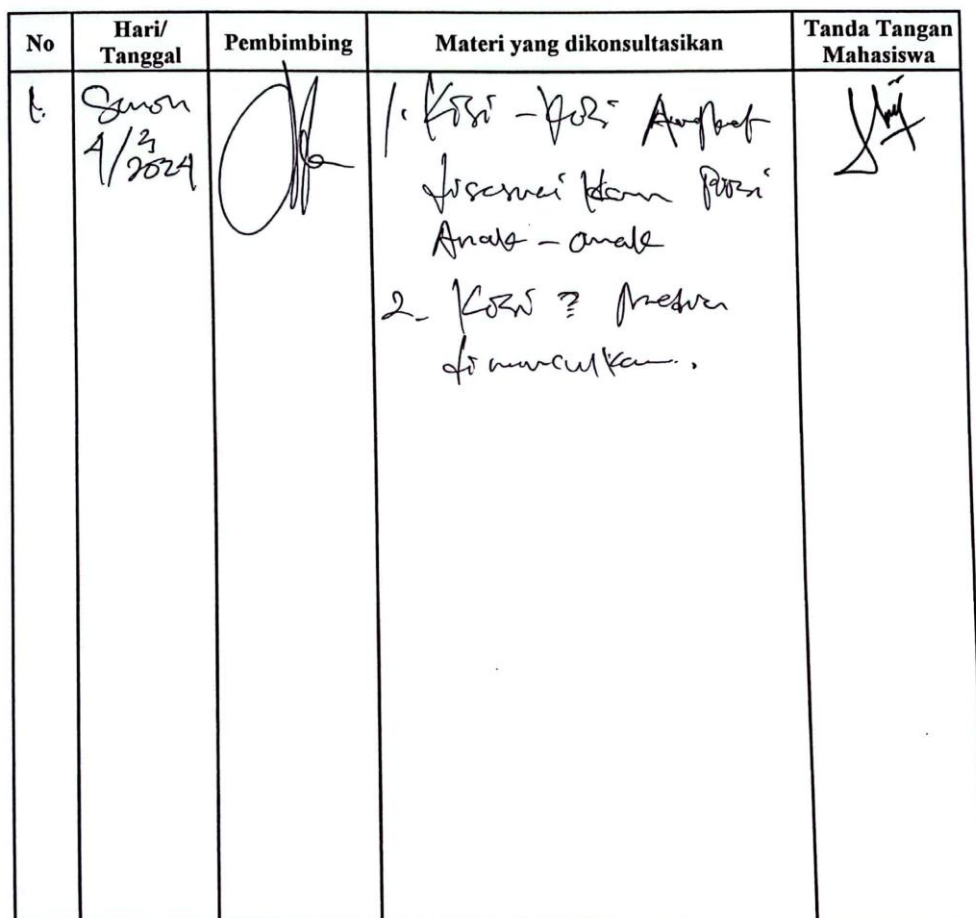 No
Hari/
Tanggal
Pembimbing
Materi yang dikonsultasikan
Tanda Tangan
Mahasiswa
1.
Senin
4/3
2024
1. Kisi - kisi Angket
disesuaikan
Anak - anak
2. Kisi ?
dimunculkan.